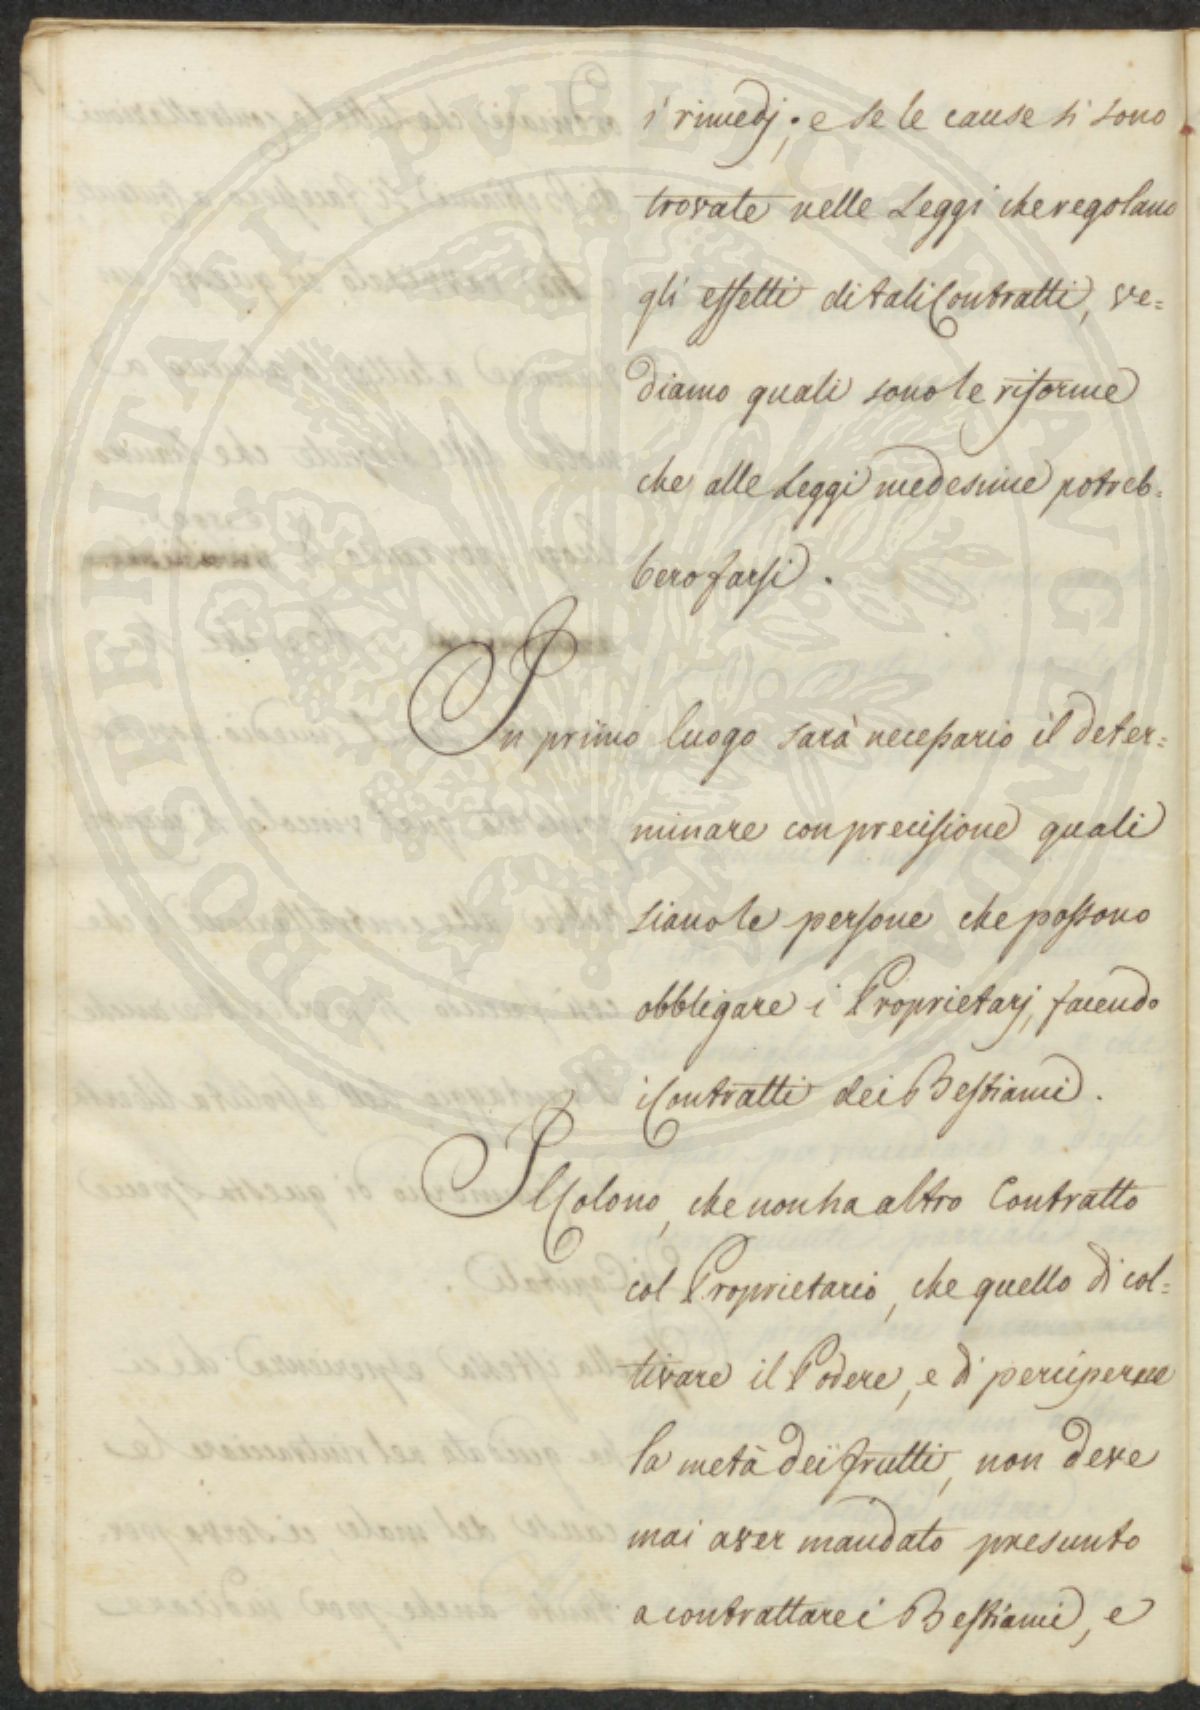 i rimedj; e se le cause si sono
trovate nelle Leggi che regolano
gli effetti di tali Contratti, ve=
diamo quali sono le riforme
che alle Leggi medesime potreb=
bero farsi.
In primo luogo sarà necessario il deter=
minare con precisione quali
siano le persone che possono
obbligare i Proprietarj, facendo
i Contratti dei Bestiami.
Il Colono, che non ha altro Contratto
col Proprietario, che quello di col=
tivare il Podere, e di perciperne
la metà dei frutti, non deve
mai aver mandato presunto
a contrattare i Bestiami, e
PROSPERITATI PVBLICAE AVGENDAE